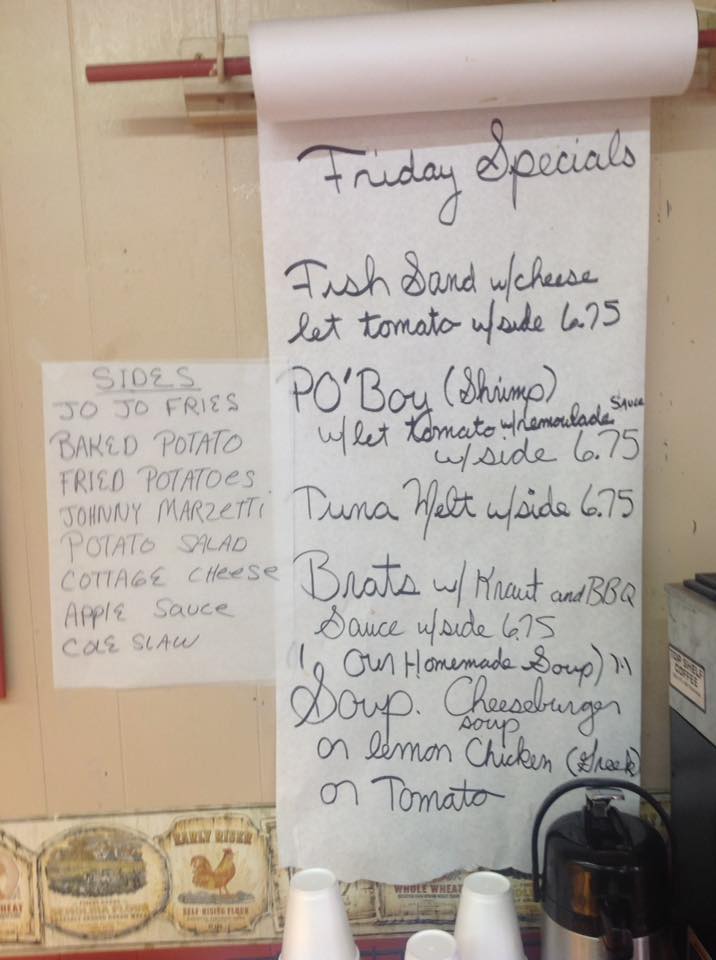 Friday Specials
Fish Sand w/cheese
let tomato w/side 6.75
PO'Boy (Shrimp)
w/let tomato w/remoulade sauce
w/side 6.75
Tuna Melt w/side 6.75
Brats w/ Kraut and BBQ
Sauce w/side 6.75
(Our Homemade Soup)
Soup. Cheeseburger
soup
or lemon Chicken (Greek)
or Tomato
SIDES
JO JO FRIES
BAKED POTATO
FRIED POTATOES
JOHNNY MARZETTI
POTATO SALAD
COTTAGE CHEESE
APPLE SAUCE
COLE SLAW
TOP SHELF
COFFEE
EARLY RISER
SELF RISING FLOUR
WHOLE WHEAT
HEAT